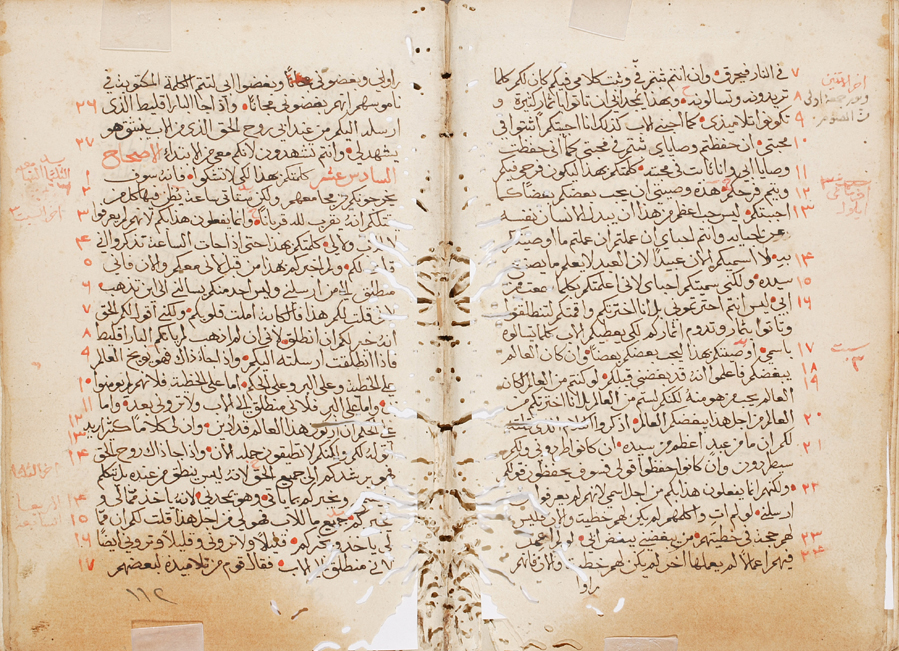 في النار فيحترق وان انتم ثبتم فيّ وثبت كلامي فيكم كان لكم كلما ٧
تريدونه وتسالونه وبهذا يمجد ابي ان تاتوا باثمار كثيرة و ٨
تكونوا تلاميذي كما احبني الاب كذلك انا احببتكم اثبتوا في ٩
محبتي ان حفظتم وصاياي ثبتم في محبتي كما اني حفظت ١٠
وصايا ابي وانا ثابت في محبته كلمتكم بهذا ليكون فرحي فيكم ١١
ويتم فرحكم هذه وصيتي ان يحب بعضكم بعضًا كما ١٢
احببتكم ليس حب اعظم من هذا ان يبدل الانسان نفسه ١٣
عن احبايه وانتم احباي ان عملتم ما اوصيتكم
به لا اسميكم الان عبيدا لان العبد لا يعلم ما يصنع ١٤
سيده ولكني سميتكم احباي لاني اعلمتكم بكلما سمعت من ١٥
ابي ليس انتم اخترتموني بل انا اخترتكم واقمتكم لتنطلقوا ١٦
وتاتوا بثمار وتدوم اثماركم لكي يعطيكم الاب كلما تسالوه
باسمي اوصيتكم بهذا ليحب بعضكم بعضا وان كان العالم ١٧
يبغضكم فاعلموا انه قد بغضني قبلكم لو كنتم من العالم لكان ١٨ ١٩
العالم يحب من هو منه لكنكم لستم من العالم بل انا اخترتكم من
العالم من اجل هذا يبغضكم العالم اذكروا ٢٠
لكم ان ما من عبد اعظم من سيده ان كانوا طردوني ولكم
سيطردون وان كانوا حفظوا قولي فسوف يحفظون قولكم ٢١
ولكنهم انما يفعلون هذا بكم من اجل اسمي لانهم لم يعرفوا ٢٢
ارسلني لو لم ات واكلمهم لم يكن لهم خطية والان فليس
لهم حجة في خطيتهم من يبغضني يبغض ابي لو لم اعمل ٢٣
فيهم اعمالا لم يعملها اخر لم يكن لهم خطية والان فانهم ٢٤
راو
راوني وبغضوني وبغضوا ابي لتتم الكلمة المكتوبة في
ناموسهم انهم بغضوني مجانا واذا جا البارقليط الذي ٢٦
ارسله اليكم من عند ابي روح الحق الذي من الاب ينبثق هو
يشهد لي وانتم تشهدون لانكم معي من الابتدا الاصحاح ٢٧
السادس عشر كلمتكم بهذا لكي لا تشكوا فانه سوف ١
يخرجونكم من مجامعهم ولكن ستاتي ساعة يظن فيها كل من ٢
يقتلكم انه يقرب لله قربانا وانما يفعلون هذا بكم لانهم لم يعرفوا ٣
الاب ولا اياي كلمتكم بهذا حتى اذا جات الساعة تذكروا اني ٤
قلت لكم ولم اخبركم بهذا من قبل لاني معكم والان فاني ٥
منطلق الى من ارسلني وليس احد منكم يسالني الى اين تذهب ٦
قلت لكم هذا فالكابة املت قلوبكم ولكني اقول لكم الحق ٧
انه خير لكم ان انطلق لاني ان لم اذهب لم ياتكم البارقليط ٨
فاذا انطلقت ارسلته اليكم واذا جا ذاك فهو يوبخ العالم ٩
على الخطية وعلى البر وعلى الحكم اما على الخطية فلانهم لم يومنوا ١٠
بي واما على البر فلاني منطلق الى الاب ولا تروني بعد واما ١١
على الحكم ان اركون هذا العالم قد دين وان لي كلاما كثيرا اريد ١٢ ١٣
قوله لكم ولكنكم لا تطيقون حمله الان واذا جا ذاك روح الحق ١٤
فهو يرشدكم الى جميع الحق لانه ليس ينطق من عنده بل يتكلم
ويخبركم بما ياتي وهو يمجدني لانه ياخذ مما لي و ١٤
خبركم جميع ما للاب فهو لي من اجل هذا قلت لكم ان مما ١٥
لي ياخذ ويخبركم قليلا ولا تروني وقليلا وتروني ايضا ١٦
لاني منطلق الى الاب فقال قوم من تلاميذه لبعضهم ١٧
١١٢